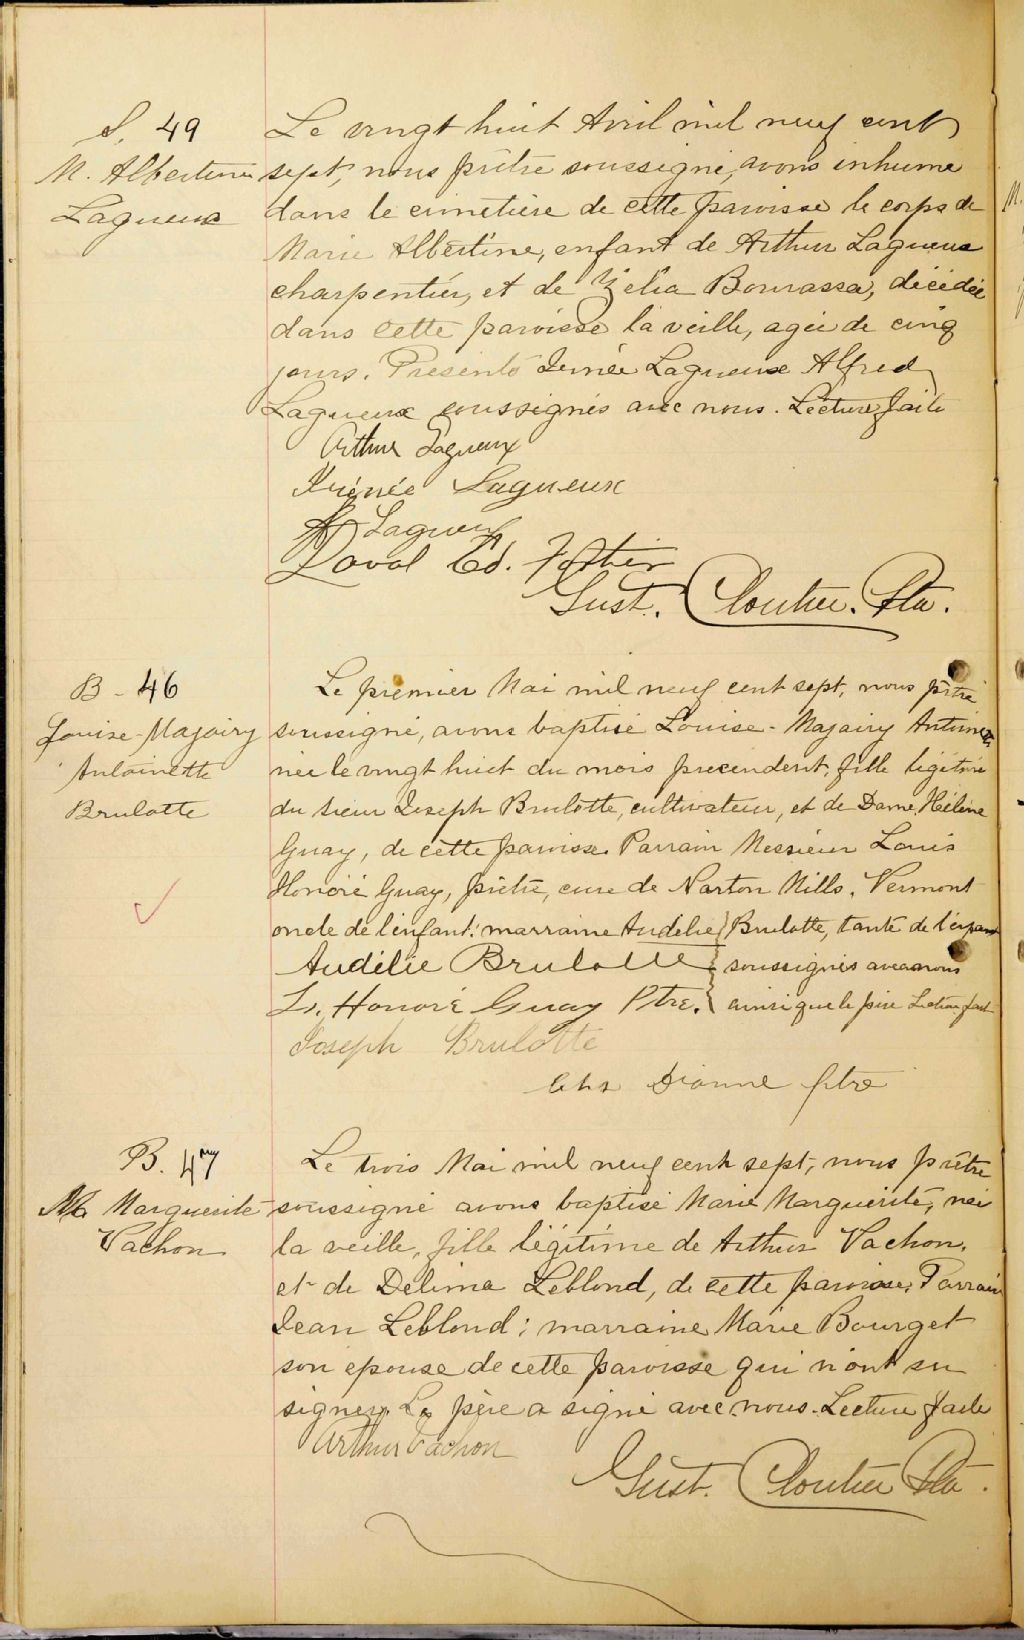 S. 49
M. Albertine
Lagueux
Le vingt huit Avril mil neuf cent
sept, nous prêtre soussigné, avons inhumé
dans le cimetière de cette paroisse le corps de
Marie Albertine, enfant de Arthur Lagueux
charpentier, et de Zélia Bourassa, décédée
dans cette paroisse la veille, agée de cinq
jours. Présents Irénée Lagueux Alfred
Lagueux soussignés avec nous. Lecture faite
Arthur Lagueux
Irénée Lagueux
A Lagueux
Laval Ed. Fortier
Gust. Cloutier. Ptre.
B - 46
Louise-Majairy
Antoinette
Brulotte
Le premier Mai mil neuf cent sept, nous prêtre
soussigné, avons baptisé Louise-Majairy Antoinette
née le vingt huit du mois precendent, fille légitime
du sieur Joseph Brulotte, cultivateur, et de Dame Hélène
Guay, de cette paroisse. Parrain Messieur Louis
Honoré Guay, prêtre, curé de Norton Mills, Vermont
oncle de l'enfant: marraine Audélie Brulotte, tante de l'enfant
Audélie Brulotte soussignés avec nous
L. Honoré Guay Ptre. ainsi que le père Lecture faite
Joseph Brulotte
Chs Dionne ptre
B. 47
M Marguerite
Vachon
Le trois Mai mil neuf cent sept, nous prêtre
soussigné avons baptisé Marie Marguerite, née
la veille, fille légitime de Arthur Vachon,
et de Delima Leblond, de cette paroisse, Parrain
Jean Leblond; marraine Marie Bourget
son épouse de cette paroisse qui n'ont su
signer. Le père a signé avec nous. Lecture faite
Arthur Vachon
Gust. Cloutier Ptre.